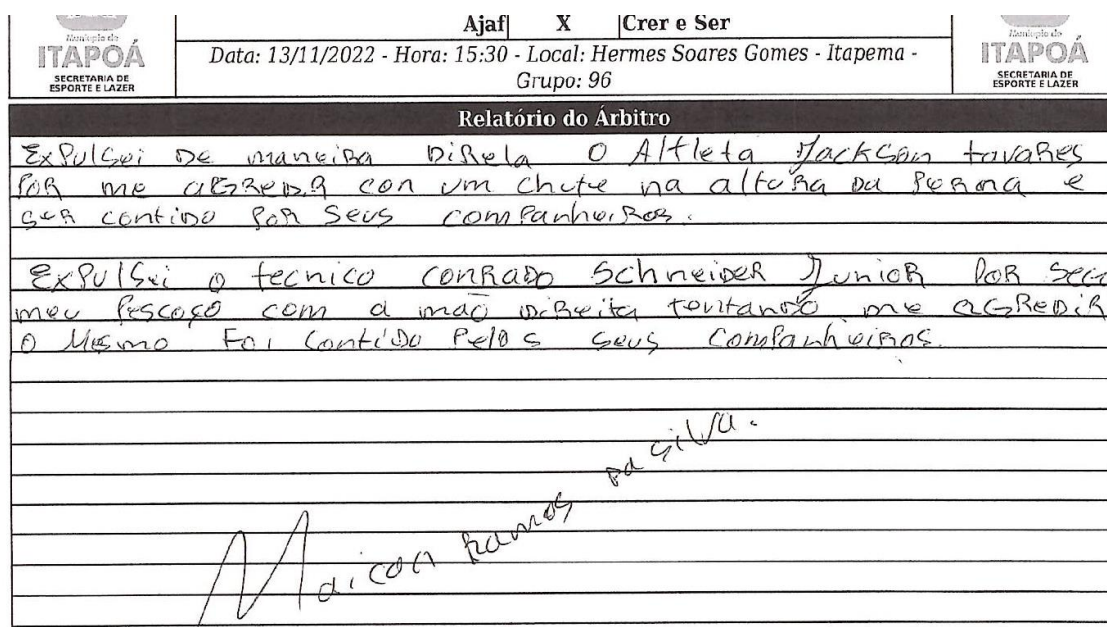 Ajaf X Crer e Ser
Município de
ITAPOÁ
SECRETARIA DE
ESPORTE E LAZER
Data: 13/11/2022 - Hora: 15:30 - Local: Hermes Soares Gomes - Itapema -
Grupo: 96
Município de
ITAPOÁ
SECRETARIA DE
ESPORTE E LAZER
Relatório do Árbitro
Expulsei de maneira direta o Altleta Jackson tavares
por me agredir con um chute na altura da perna e
ser contido por seus companheiros.
Expulsei o tecnico conrado Schneider Junior por
meu pescoço com a mão direita tentando me agredir
o mesmo foi contido pelos seus companheiros.
Maicon Ramos da silva.